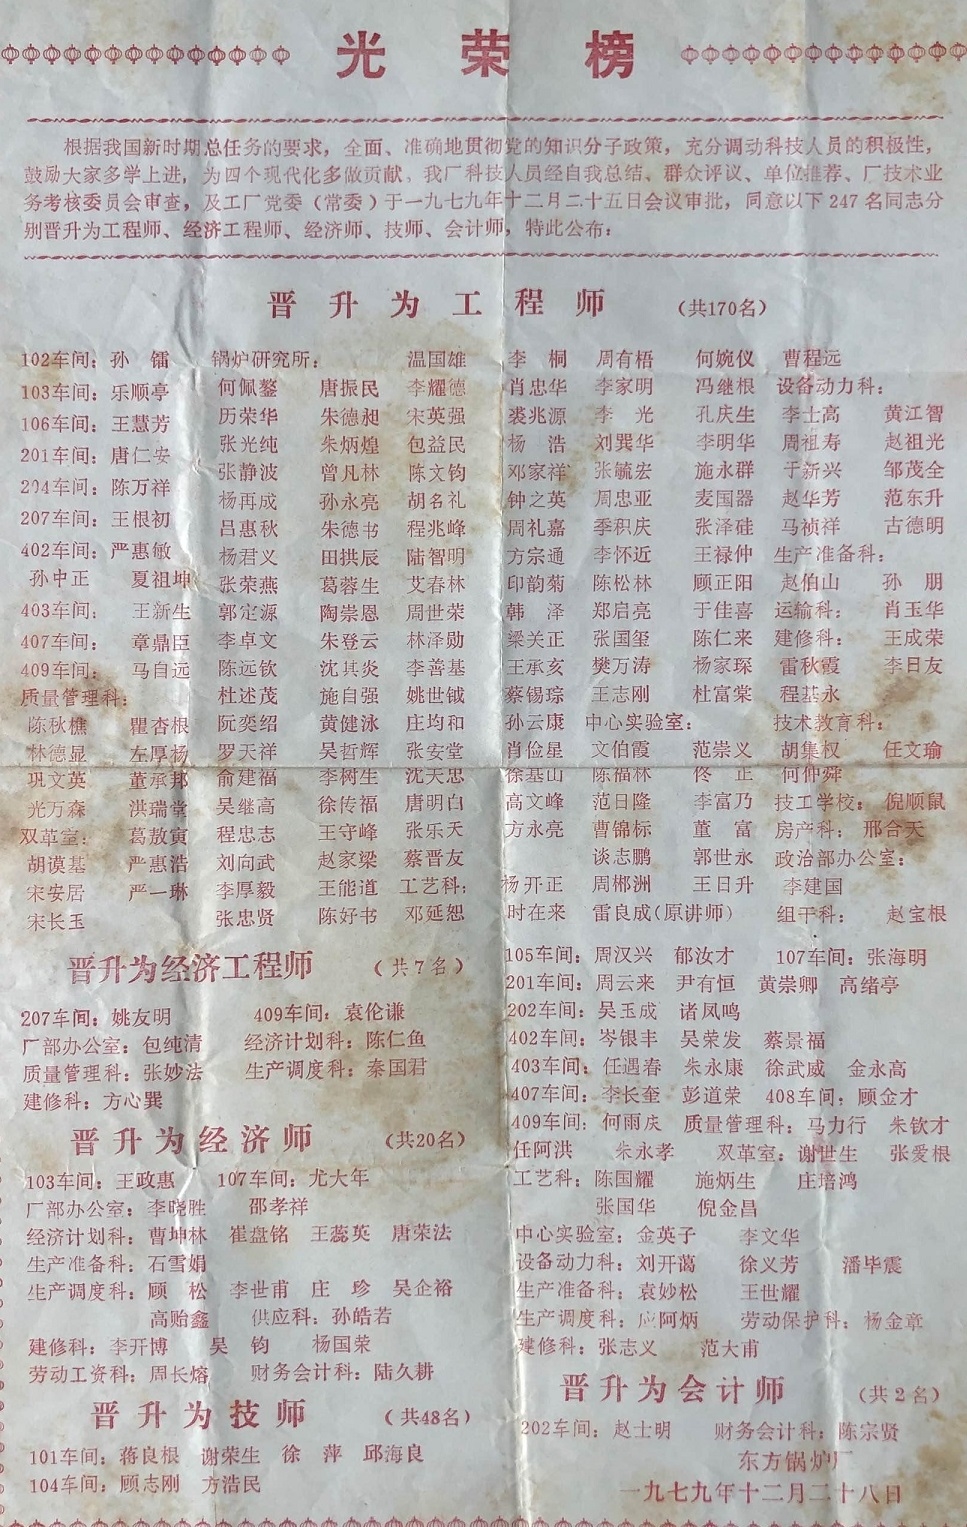 光荣榜
根据我国新时期总任务的要求，全面、准确地贯彻党的知识分子政策，充分调动科技人员的积极性，
鼓励大家多学上进，为四个现代化多做贡献。我厂科技人员经自我总结、群众评议、单位推荐、厂技术业
务考核委员会审查，及工厂党委（常委）于一九七九年十二月二十五日会议审批，同意以下247名同志分
别晋升为工程师、经济工程师、经济师、技师、会计师，特此公布：
晋升为工程师 （共170名）
102车间：孙 镭
103车间：乐顺亭
106车间：王慧芳
201车间：唐仁安
204车间：陈万祥
207车间：王根初
402车间：严惠敏
孙中正 夏祖坤
403车间：王新生
407车间：章鼎臣
409车间：马自远
质量管理科：
陈秋樵 瞿杏根
林德显 左厚杨
巩文英 董承邦
光万森 洪瑞堂
双革室：葛敖寅
胡谟基 严惠浩
宋安居 严一琳
宋长玉
锅炉研究所： 温国雄
何佩鏊 唐振民 李耀德
历荣华 朱德昶 宋英强
张光纯 朱炳煌 包益民
张静波 曾凡林 陈文钧
杨再成 孙永亮 胡名礼
吕惠秋 朱德书 程兆峰
杨君义 田拱辰 陆智明
张荣燕 葛蓉生 艾春林
郭定源 陶崇恩 周世荣
李卓文 朱登云 林泽勋
陈远钦 沈其炎 李善基
杜述茂 施自强 姚世钺
阮奕绍 黄健泳 庄均和
罗天祥 吴哲辉 张安堂
俞建福 李树生 沈天忠
吴继高 徐传福 唐明白
程忠志 王守峰 张乐天
刘向武 赵家梁 蔡晋友
李厚毅 王能道 工艺科：
张忠贤 陈好书 邓延恕
李 桐 周有梧 何婉仪 曹程远
肖忠华 李家明 冯继根 设备动力科：
裘兆源 李 光 孔庆生 李士高 黄江智
杨 浩 刘巽华 李明华 周祖寿 赵祖光
邓家祥 张毓宏 施永群 于新兴 邹茂全
钟之英 周忠亚 麦国器 赵华芳 范东升
周礼嘉 季积庆 张泽硅 马祯祥 古德明
方宗通 李怀近 王禄仲 生产准备科：
印韵菊 陈松林 顾正阳 赵伯山 孙 朋
韩 泽 郑启亮 于佳喜 运输科： 肖玉华
梁关正 张国玺 陈仁来 建修科： 王成荣
王承亥 樊万涛 杨家琛 雷秋霞 李日友
蔡锡琮 王志刚 杜富棠 程基永
孙云康 中心实验室： 技术教育科：
肖俭星 文伯霞 范崇义 胡集权 任文瑜
徐基山 陈福林 佟 正 何仲舜
高文峰 范日隆 李富乃 技工学校：倪顺鼠
方永亮 曹锦标 董 富 房产科：邢合天
谈志鹏 郭世永 政治部办公室：
杨开正 周郴洲 王日升 李建国
时在来 雷良成（原讲师） 组干科： 赵宝根
晋升为经济工程师 （共7名）
207车间：姚友明 409车间：袁伦谦
厂部办公室：包纯清 经济计划科：陈仁鱼
质量管理科：张妙法 生产调度科：秦国君
建修科：方心巽
晋升为经济师 （共20名）
103车间：王政惠 107车间：尤大年
厂部办公室：李晓胜 邵孝祥
经济计划科：曹坤林 崔盘铭 王蕊英 唐荣法
生产准备科：石雪娟
生产调度科：顾 松 李世甫 庄 珍 吴企裕
高贻鑫 供应科：孙皓若
建修科：李开博 吴 钧 杨国荣
劳动工资科：周长熔 财务会计科：陆久耕
晋升为技师 （共48名）
101车间：蒋良根 谢荣生 徐 萍 邱海良
104车间：顾志刚 方浩民
105车间：周汉兴 郁汝才 107车间：张海明
201车间：周云来 尹有恒 黄崇卿 高绪亭
202车间：吴玉成 诸凤鸣
402车间：岑银丰 吴荣发 蔡景福
403车间：任遇春 朱永康 徐武威 金永高
407车间：李长奎 彭道荣 408车间：顾金才
409车间：何雨庆 质量管理科：马力行 朱钦才
任阿洪 朱永孝 双革室：谢世生 张爱根
工艺科：陈国耀 施炳生 庄培鸿
张国华 倪金昌
中心实验室：金英子 李文华
设备动力科：刘开蔼 徐义芳 潘毕震
生产准备科：袁妙松 王世耀
生产调度科：应阿炳 劳动保护科：杨金章
建修科：张志义 范大甫
晋升为会计师 （共2名）
202车间：赵士明 财务会计科：陈宗贤
东方锅炉厂
一九七九年十二月二十八日